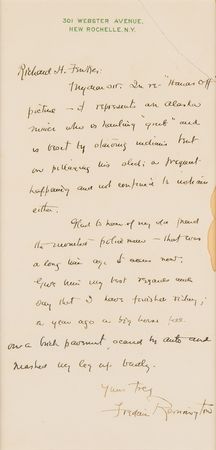 301 WEBSTER AVENUE,
NEW ROCHELLE, N.Y.
Richard H.
My dear sir: In re "Hands off"
picture – it represents an Alaska
miner who is hauling "grub" and
is beset by starving indians bent
on pillaging his sled; a frequent
happening and not confined to indians
either.
Glad to hear of my old friend
the mounted police man – that was
a long time ago it seems now.
Give him my best regards and
say that I have finished riding;
a year ago a big horse fell
on a brick pavement, scared by auto and
mashed my leg up badly.
Yours truly
Frederic Remington